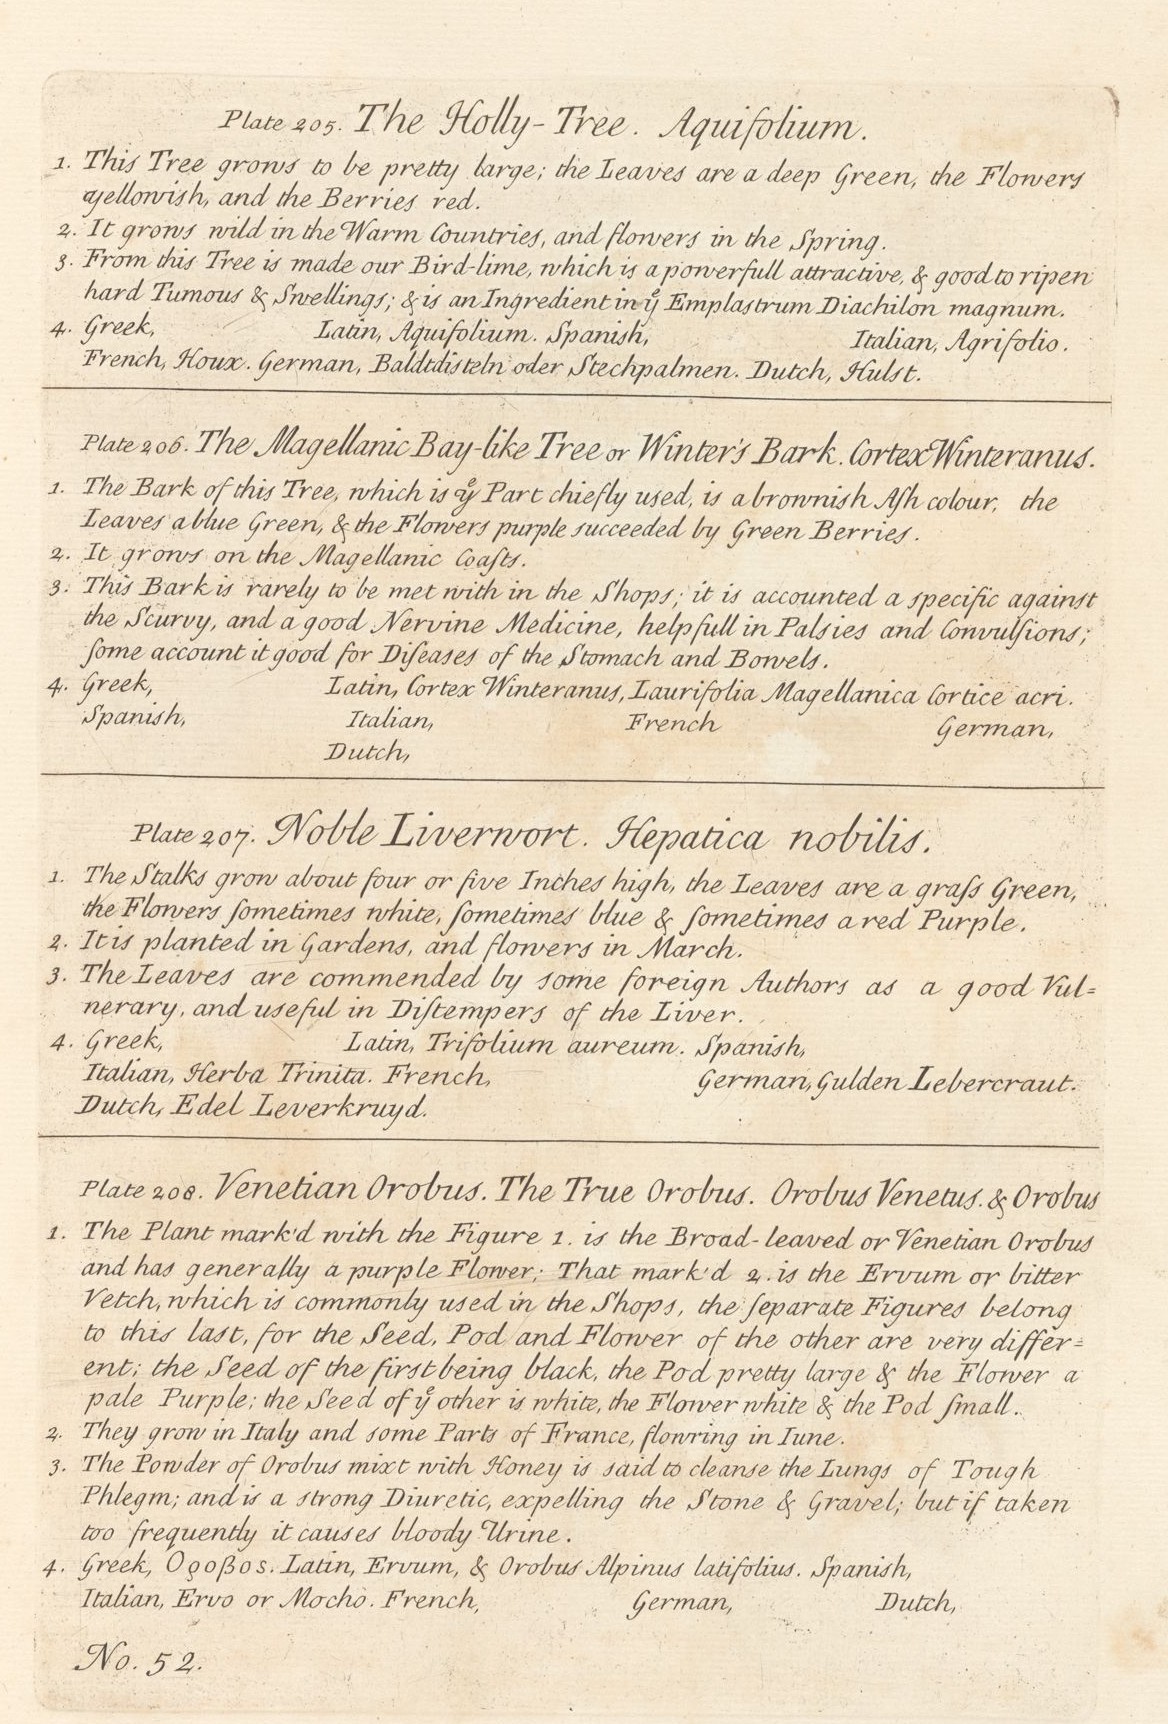 Plate 205. The Holly-Tree. Aquifolium.
1. This Tree grows to be pretty large; the Leaves are a deep Green, the Flowers
yellowish, and the Berries red.
2. It grows wild in the Warm Countries, and flowers in the Spring.
3. From this Tree is made our Bird-lime, which is a powerfull attractive, & good to ripen
hard Tumous & Swellings; & is an Ingredient in yͤ Emplastrum Diachilon magnum.
4. Greek, Latin, Aquifolium. Spanish, Italian, Agrifolio.
French, Houx. German, Baldtdisteln oder Stechpalmen. Dutch, Hulst.
Plate 206. The Magellanic Bay-like Tree or Winter's Bark. Cortex Winteranus.
1. The Bark of this Tree, which is yͤ Part chiefly used, is a brownish Aſh colour, the
Leaves a blue Green, & the Flowers purple succeeded by Green Berries.
2. It grows on the Magellanic Coaſts.
3. This Bark is rarely to be met with in the Shops; it is accounted a specific against
the Scurvy, and a good Nervine Medicine, helpfull in Palsies and Convulſions;
ſome account it good for Diſeases of the Stomach and Bowels.
4. Greek, Latin, Cortex Winteranus, Laurifolia Magellanica Cortice acri.
Spanish, Italian, French German,
Dutch,
Plate 207. Noble Liverwort. Hepatica nobilis.
1. The Stalks grow about four or five Inches high, the Leaves are a graſs Green,
the Flowers ſometimes white, ſometimes blue & ſometimes a red Purple.
2. It is planted in Gardens, and flowers in March.
3. The Leaves are commended by some foreign Authors as a good Vul=
nerary, and useful in Diſtempers of the Liver.
4. Greek, Latin, Trifolium aureum. Spanish,
Italian, Herba Trinita. French, German, Gulden Lebercraut.
Dutch, Edel Leverkruyd.
Plate 208. Venetian Orobus. The True Orobus. Orobus Venetus. & Orobus
1. The Plant mark'd with the Figure 1. is the Broad-leaved or Venetian Orobus
and has generally a purple Flower; That mark'd 2. is the Ervum or bitter
Vetch, which is commonly used in the Shops, the ſeparate Figures belong
to this last, for the Seed, Pod and Flower of the other are very differ=
ent; the Seed of the first being black, the Pod pretty large & the Flower a
pale Purple; the Seed of yͤ other is white, the Flower white & the Pod ſmall.
2. They grow in Italy and some Parts of France, flowring in Iune.
3. The Powder of Orobus mixt with Honey is said to cleanse the Lungs of Tough
Phlegm; and is a strong Diuretic, expelling the Stone & Gravel; but if taken
too frequently it causes bloody Urine.
4. Greek, Οροβος. Latin, Ervum, & Orobus Alpinus latifolius. Spanish,
Italian, Ervo or Mocho. French, German, Dutch,
No. 52.